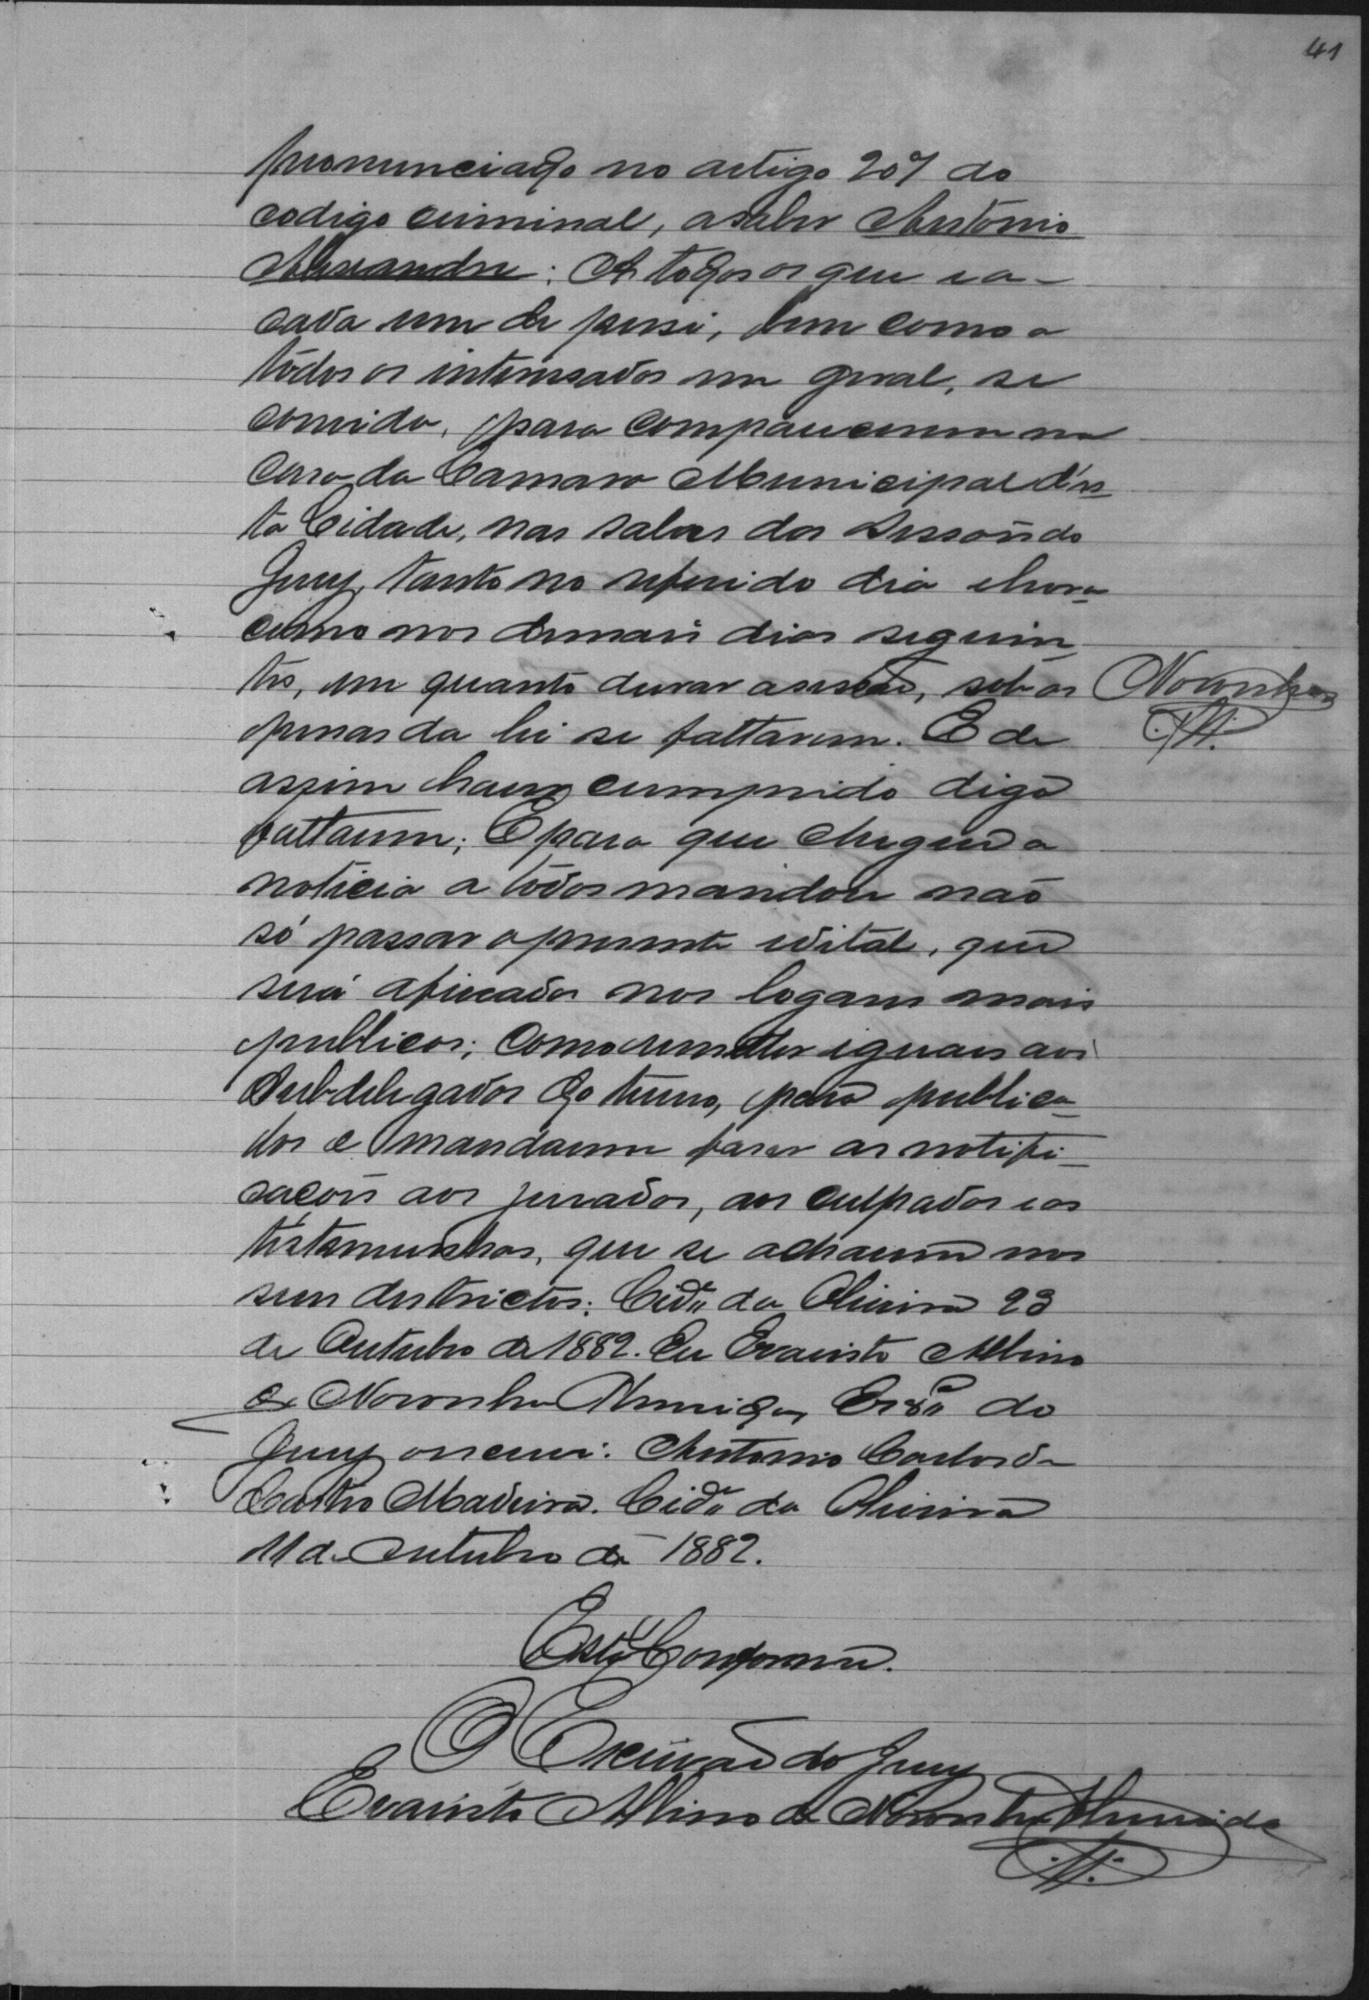 41
pronunciado no artigo 207 do
codigo criminal, asaber Antonio
Alexandre; A todos os que ea-
cada um de persi, bem como a
tôdos os interessados em geral, se
convida, para comparecerem na
casa da Camara Municipal d'es-
ta Cidade, nas salas das Sessões do
Jury, tanto no referido dia e hora
como nos demais dias seguin
tes, em quanto durar asessão, sob as
penas da lei se faltarem. E de
assim haver cumprido digo
faltarem; E para que chegue a
noticia a tôdos mandou não
só passar o presente edital, que
será afixados nos logares mais
publicos; como remetter iguais aos
Subdelegados do termo, para publica-
los e mandarem faser as notifi-
cações aos jurados, aos culpados e as
téstemunhas, que se acharem nos
seus destrictos: Cidᵉ da Oliveira 23
de Outubro de 1882. Eu Evaristo Albino
de Noronha Almeida, Escᵐ do
Jury oscrevi: Antonio Carlos de
Castro Madeira. Cidᵉ da Oliveira
11 de Outubro de 1882.
Noronha
Está Conforme.
O Escrivão do Jury
Evaristo Albino de Noronha Almeida